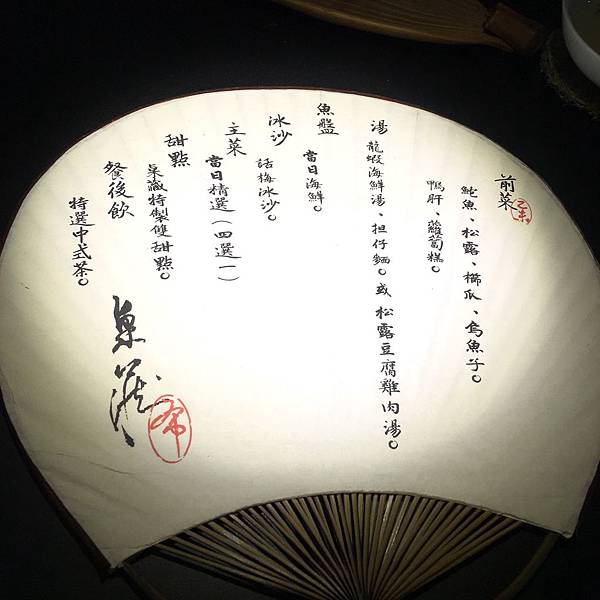 前菜
乙未
鮑魚、松露、櫛瓜、烏魚子。
鴨肝、蘿蔔糕。
湯
龍蝦海鮮湯、担仔麵。或松露豆腐雞肉湯。
魚盤
當日海鮮。
冰沙
話梅冰沙。
主菜
當日精選(四選一)
甜點
桌藏特製雙甜點。
餐後飲
特選中式茶。
桌藏